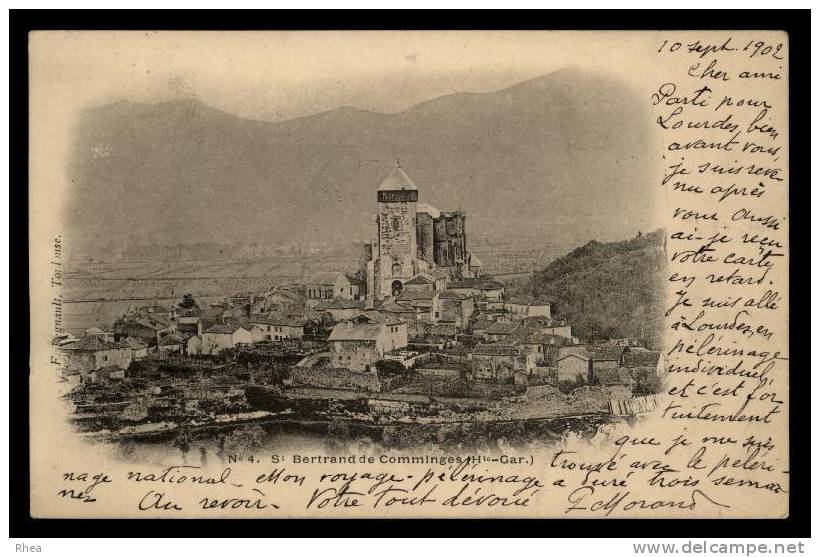 10 sept. 1902
Cher ami
Parti pour
Lourdes, bien
avant vous,
je suis reve
nu après
vous aussi
ai-je reçu
votre carte
en retard.
Je suis allé
à Lourdes, en
pélérinage
individuel
et c'est for
tuitement
que je me suis
trouvé avec le péleri-
nage national - Mon voyage-pélérinage a duré trois semai
nes
Au revoir - Votre tout dévoué PMorand
F. Regnault, Toulouse.
No 4. St Bertrand de Comminges (Hte-Gar.)
Rhea
http://www.delcampe.net